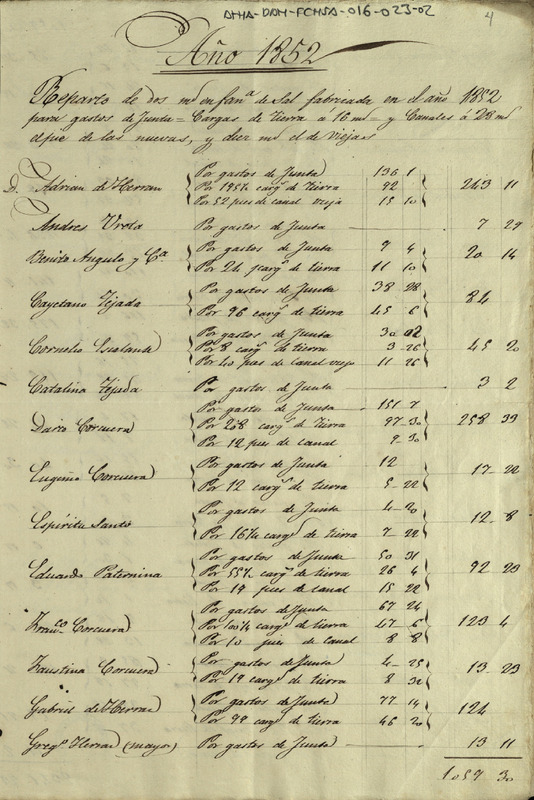 AMA-DAM-FCHSA-016-023-02
4
Año 1852
Reparto de dos mrs en fanª de Sal fabricada en el año 1852
para gastos de Junta = Cargas de tierra a 16 mrs = y Canales a 28 mrs
el pie de las nuevas, y diez mrs el de viejas
D. Adrian de Herran
Por gastos de Junta 136 1
Por 195½ cargs de tierra 92
Por 52 pies de canal viejo 15 10
243 11
Andres Urota Por gastos de Junta 7 29
Benito Angulo y Cª
Por gastos de Junta 9 4
Por 24 cargs de tierra 11 10
20 14
Cayetano Tejada
Por gastos de Junta 38 28
Por 96 cargs de tierra 45 6
84
Cornelio
Por gastos de Junta 30 02
Por 8 cargs de tierra 3 26
Por 40 pies de Canal viejo 11 26
45 20
Catalina Tejada Por gastos de Junta 3 2
Corcuera
Por gastos de Junta 151 7
Por 208 cargs de tierra 97 30
Por 12 pies de canal 9 30
258 33
Eugenio Corcuera
Por gastos de Junta 12
Por 12 cargs de tierra 5 22
17 22
Espiritu Santo
Por gastos de Junta 4 20
Por 16¼ cargs de tierra 7 22
12 8
Eduardo Paternina
Por gastos de Junta 50 31
Por 55½ cargs de tierra 26 4
Por 19 pies de canal 15 22
92 23
Franco Corcuera
Por gastos de Junta 67 24
Por 100¼ cargs de tierra 47 6
Por 10 pies de Canal 8 8
123 4
Faustina Corcuera
Por gastos de Junta 4 25
Por 19 cargs de tierra 8 32
13 23
Gabriel de Herran
Por gastos de Junta 77 14
Por 99 cargs de tierra 46 20
124
Gregº Herran (mayor) Por gastos de Junta 13 11
1059 30